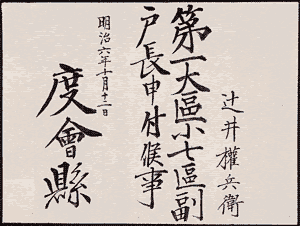 辻井權兵衛
第一大區小七區副
戸長申付候事
明治六年十月十二日
度會縣